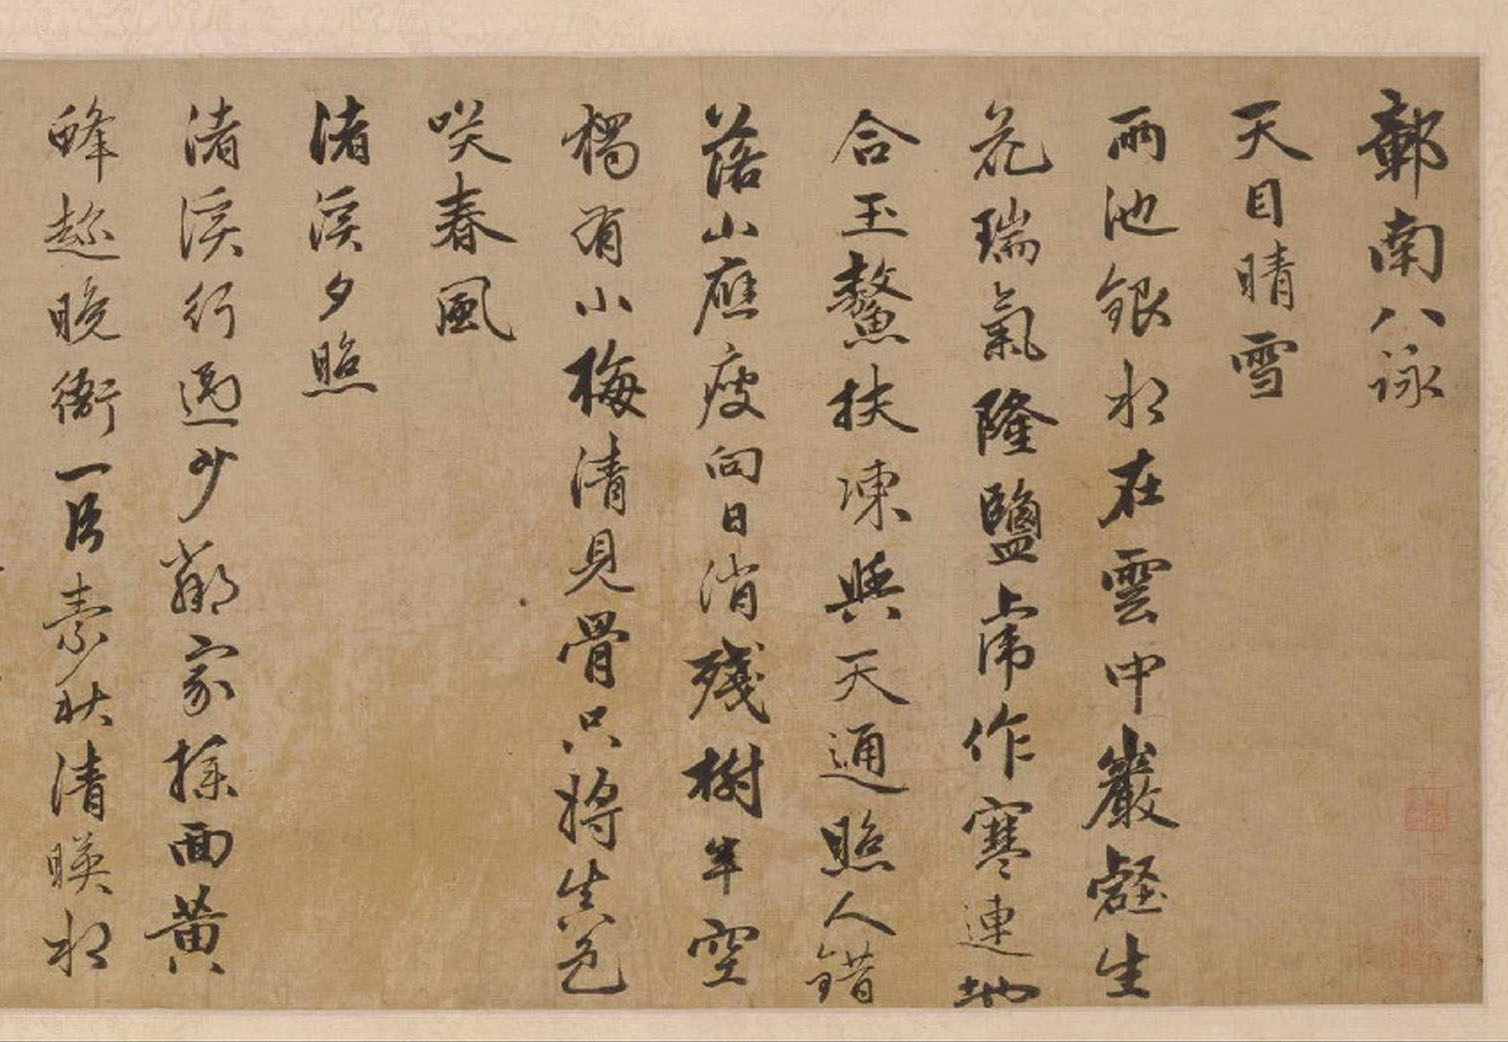 鄣南八詠
天目晴雪
兩池銀水在雲中巖壑生
花瑞氣隆鹽虎作寒連地
合玉鰲扶凍與天通照人錯
落山應瘦向日消殘樹半空
獨有小梅清見骨只將生色
笑春風
渚溪夕照
渚溪行過少鄰家採面黃
蜂趂晚衙一片素秋清暎水